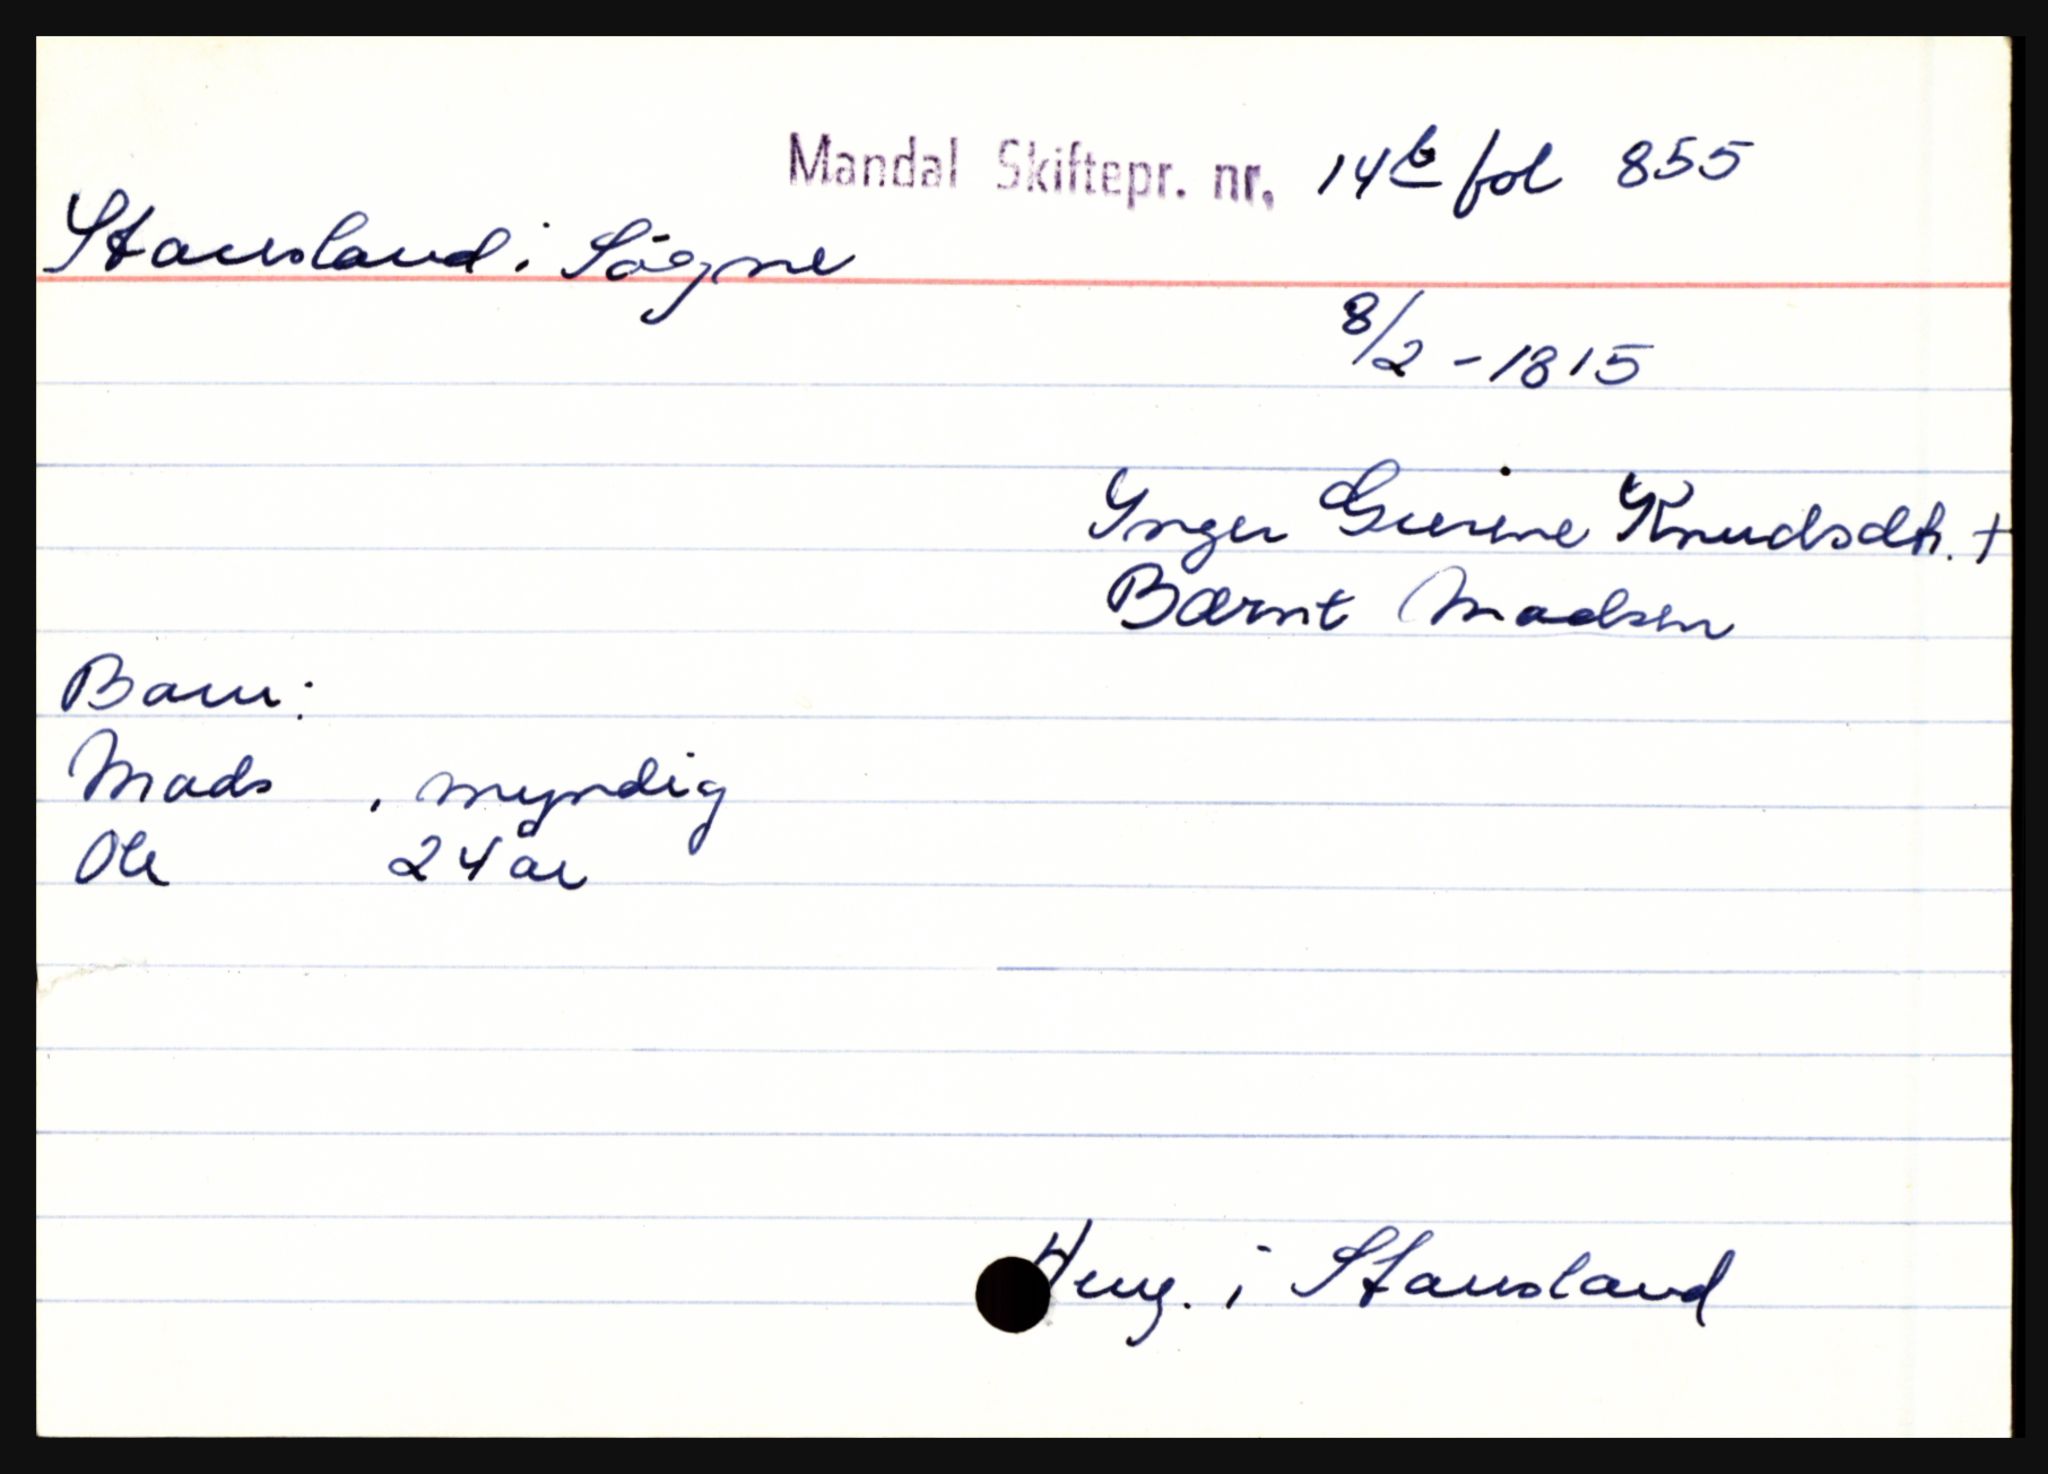 Mandal Skiftepr. nr. 14b fol 855
Stausland i Søgne
8/2 - 1815
Inger Gurine Knudsdtr. +
Bærnt Madsen
Barn:
Mads , myndig
Ole 24 år
Heng. i Stausland